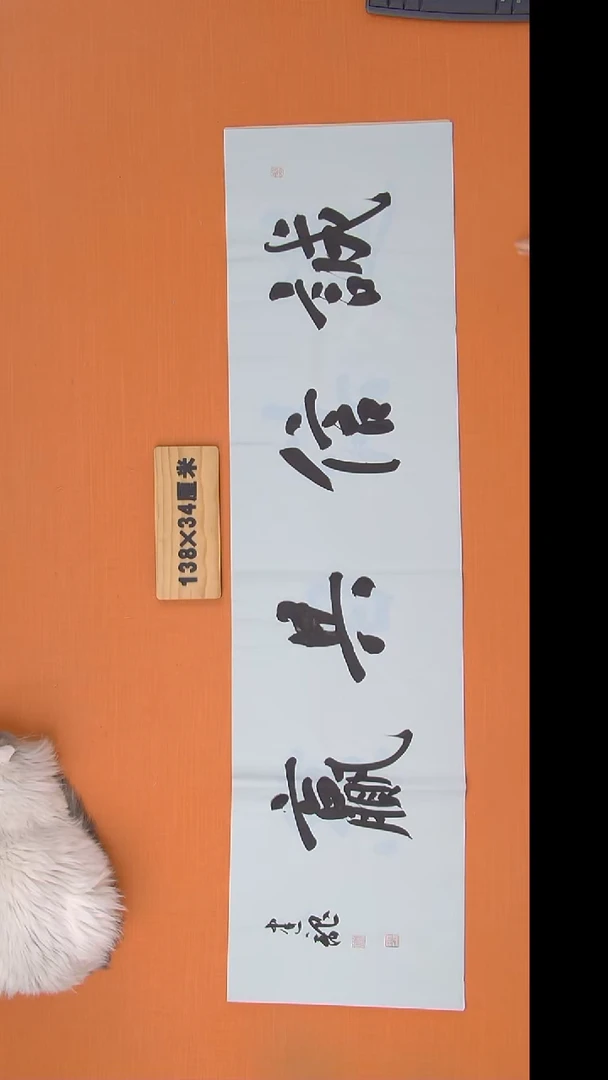 誠信共贏
138×34厘米